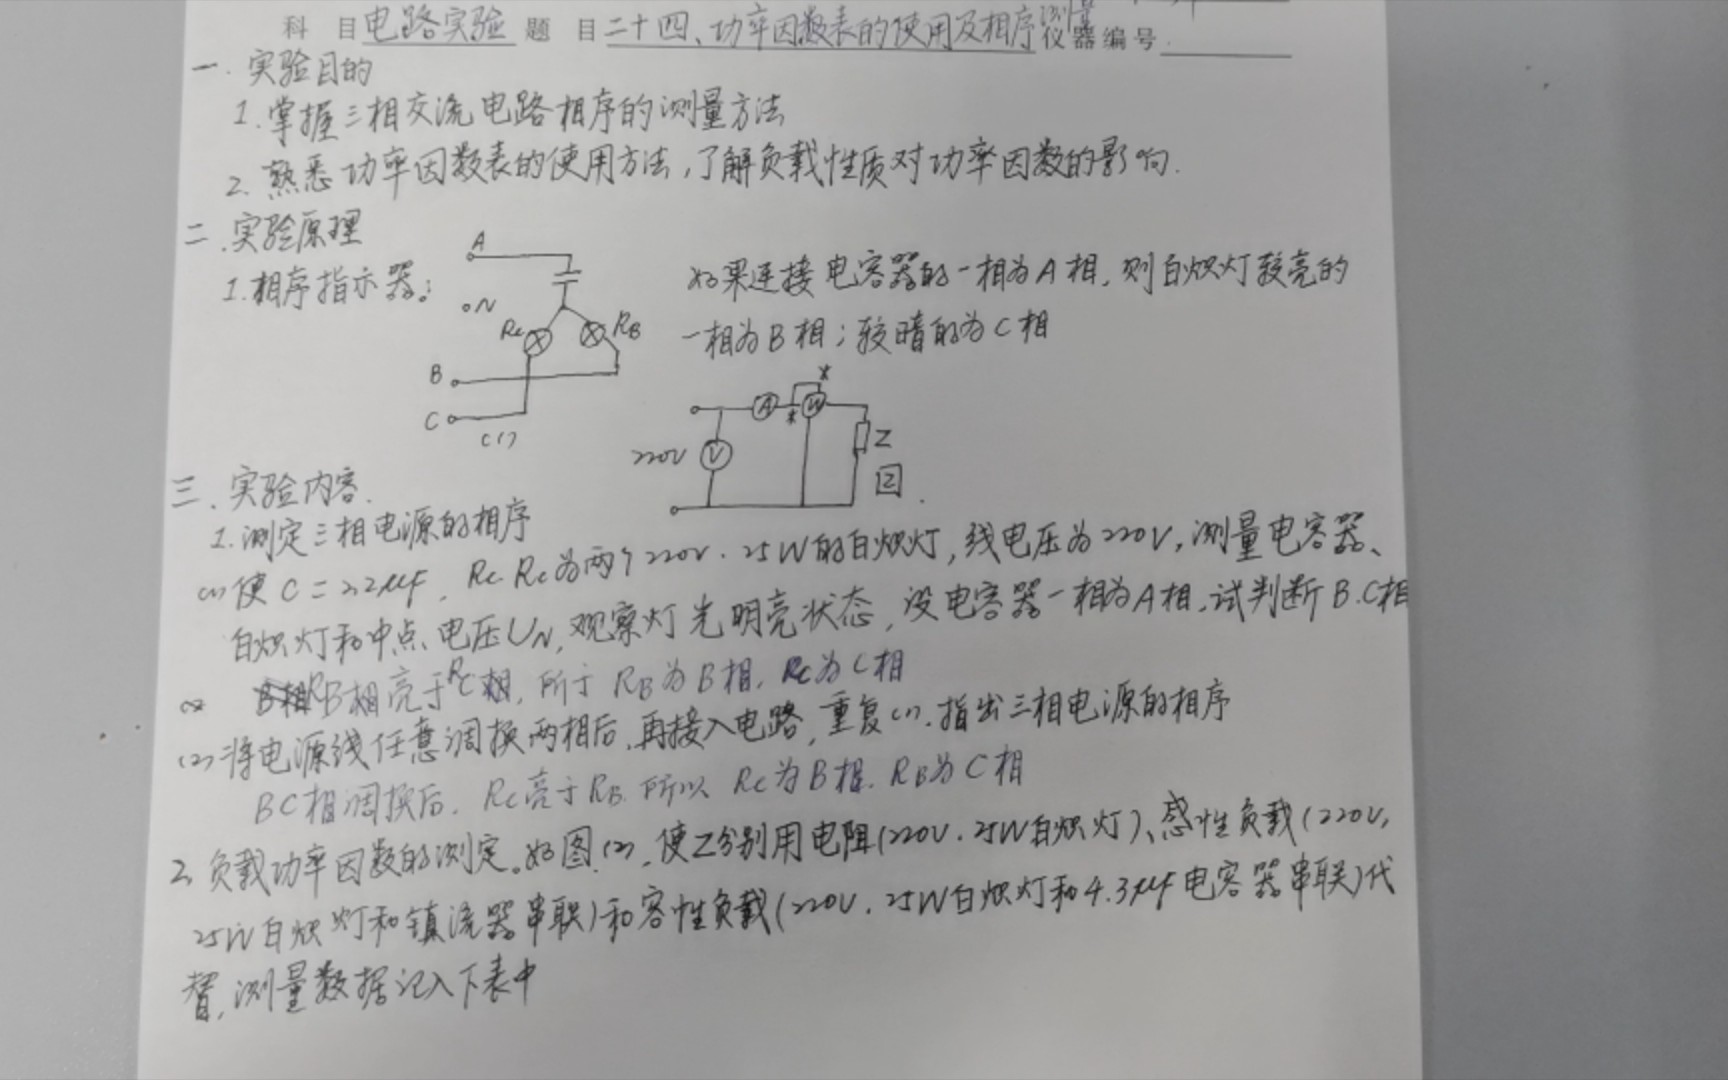 科 目 电路实验 题 目 二十四、功率因数表的使用及相序测量 仪器编号
一. 实验目的
1. 掌握三相交流电路相序的测量方法
2. 熟悉功率因数表的使用方法,了解负载性质对功率因数的影响.
二. 实验原理
1. 相序指示器:
A
N
Rc
RB
B
C
(1)
如果连接电容器的一相为A相,则白炽灯较亮的
一相为B相;较暗的为C相
220V
V
A
*
*
W
Z
图
三. 实验内容.
1. 测定三相电源的相序
(1) 使C=2.2μF, Rc.Rc为两个220V.25W的白炽灯,线电压为220V,测量电容器、
白炽灯和中点电压UN,观察灯光明亮状态,设电容器一相为A相,试判断B.C相
RB相亮于Rc相,所于RB为B相,Rc为C相
(2) 将电源线任意调换两相后,再接入电路,重复(1),指出三相电源的相序
BC相调换后,Rc亮于RB,所以Rc为B相.RB为C相
2. 负载功率因数的测定。如图(2),使Z分别用电阻(220V.25W白炽灯)、感性负载(220V,
25W白炽灯和镇流器串联)和容性负载(220V.25W白炽灯和4.3μF电容器串联)代
替,测量数据记入下表中